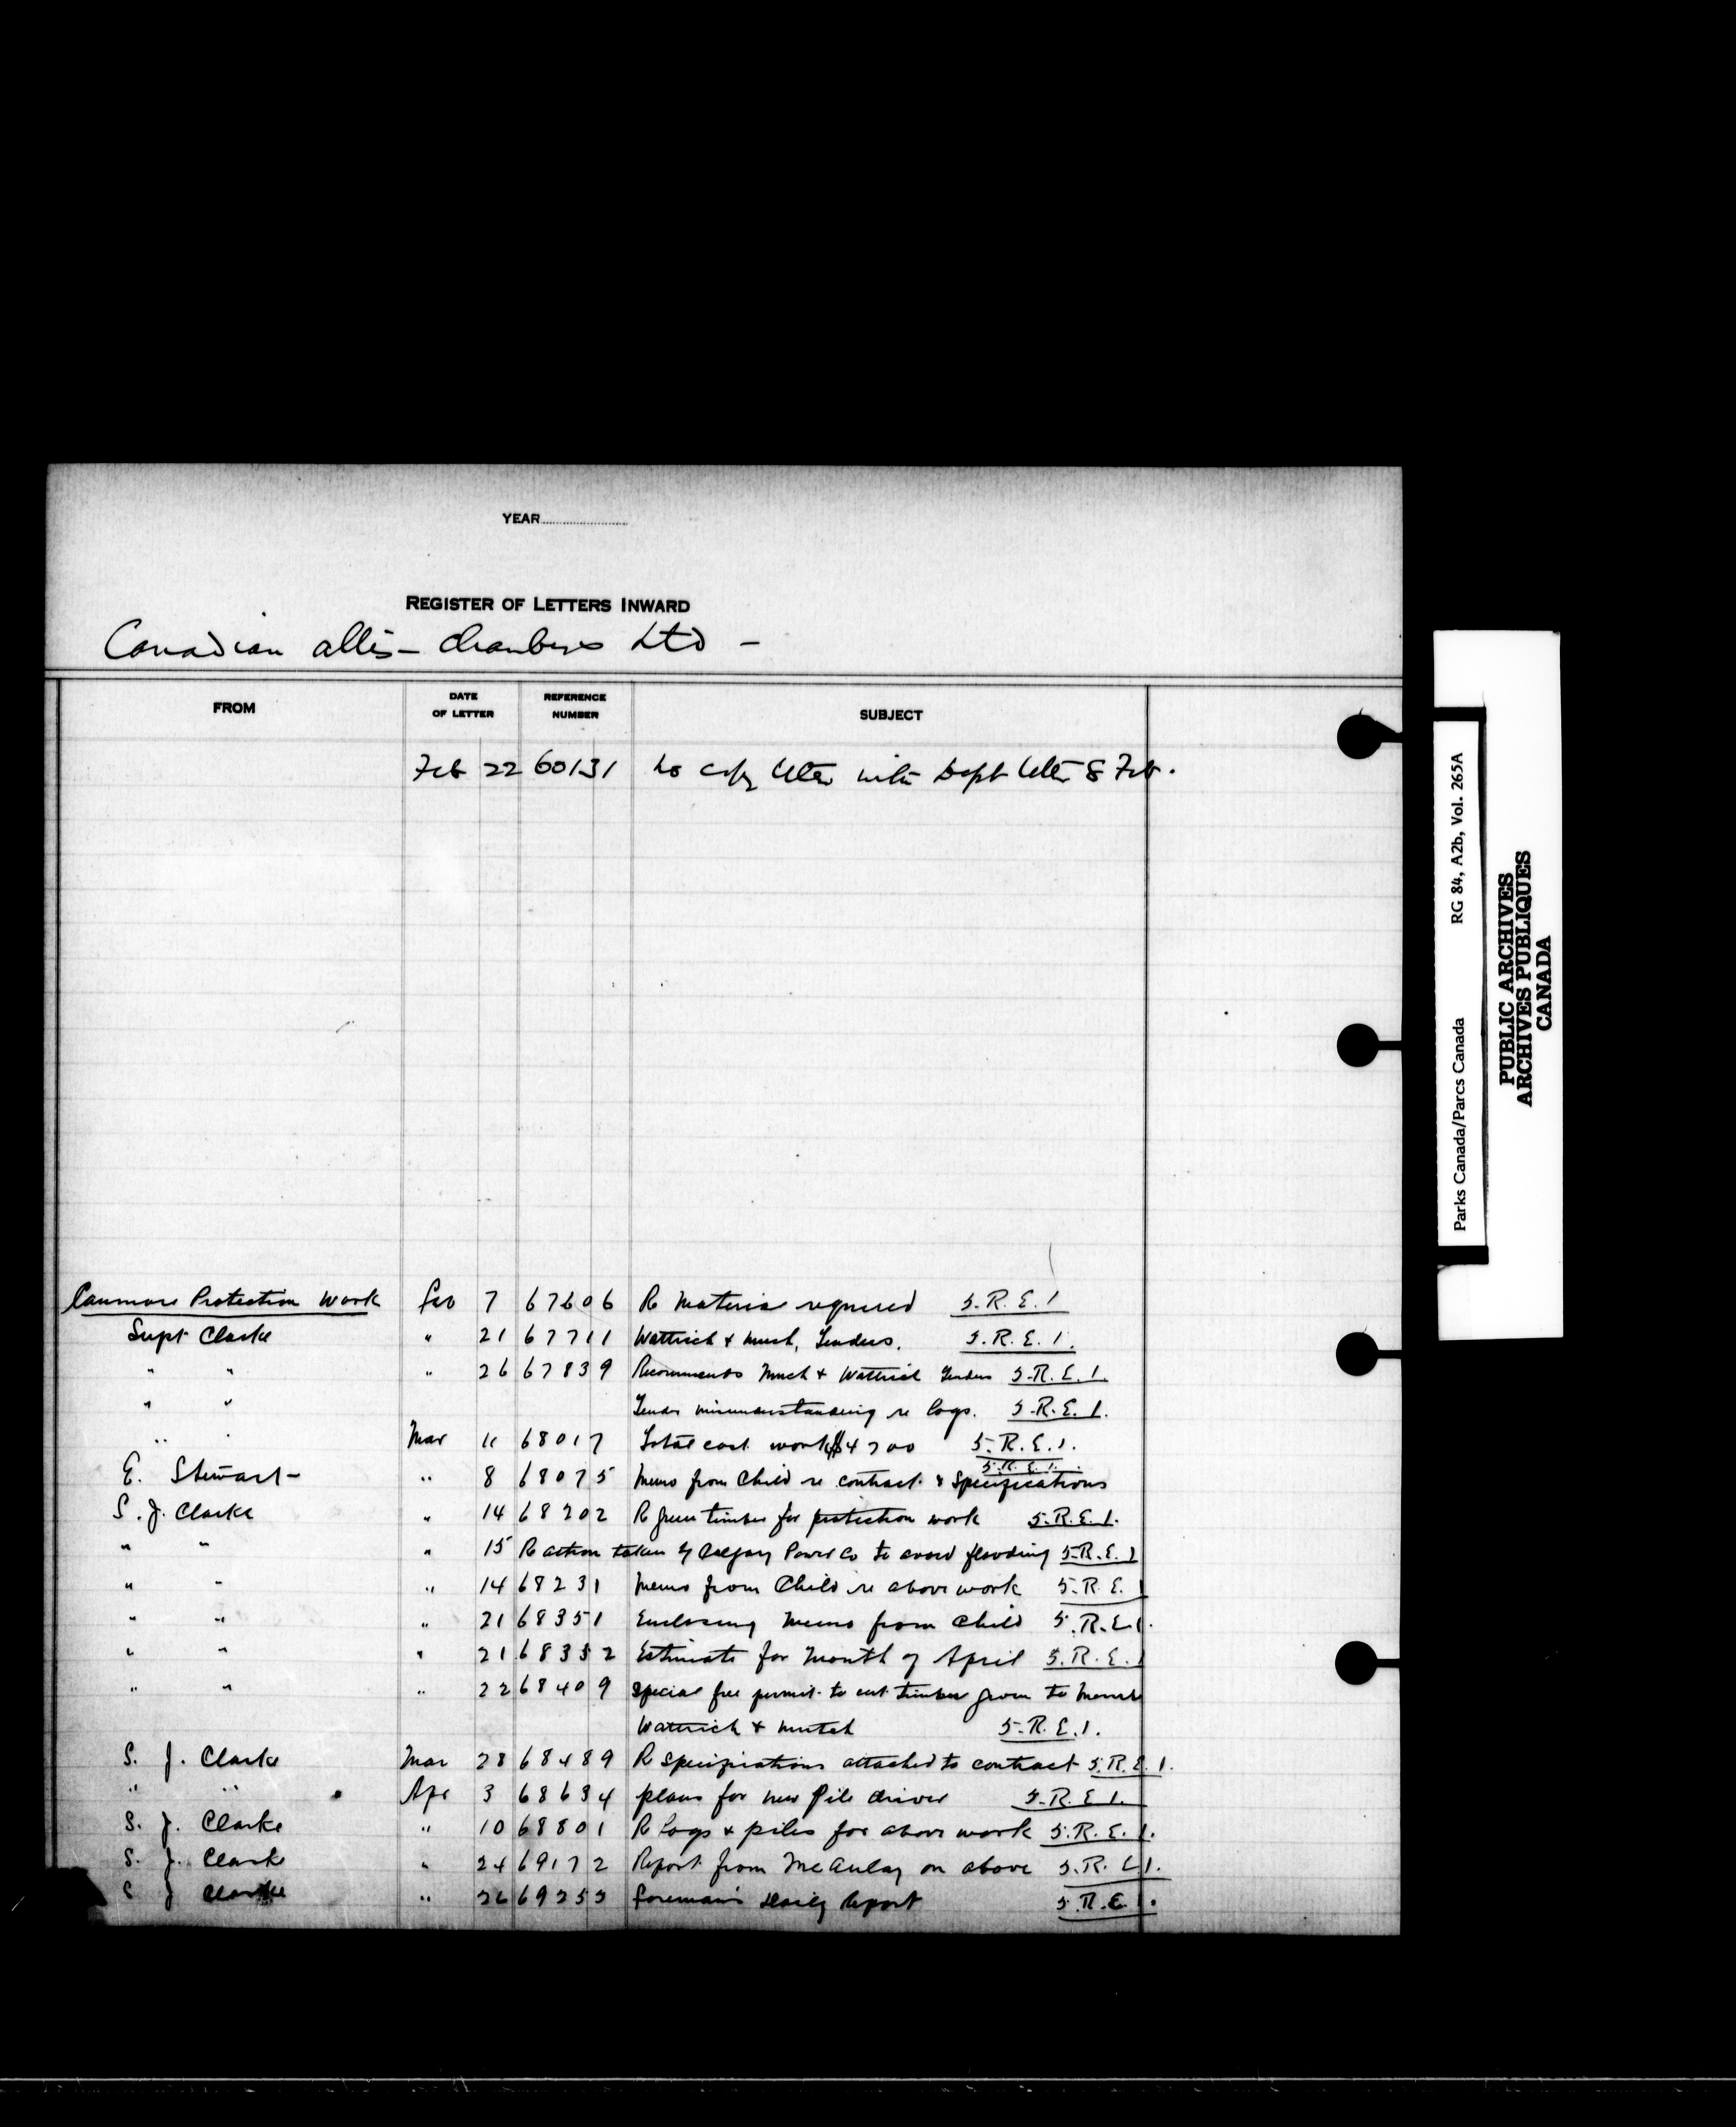 YEAR
REGISTER OF LETTERS INWARD
Canadian Allis-Chambers Ltd -
FROM DATE OF LETTER REFERENCE NUMBER SUBJECT
Feb 22 60131 No copy letter with Dept letter 8 Feb.
Canmore Protection Work Feb 7 67606 Re Material required 5.R.E.1
Supt Clarke " 21 67711 Wattrich & Mutch, Tenders. 5.R.E.1.
" " " 26 67839 Recommends Mutch & Wattrich Tenders 5.R.E.1.
" " Tender misunderstanding re logs. 5.R.E.1.
" " Mar 11 68017 Total cost work $4700 5.R.E.1.
5.R.E.1.
E. Stewart - " 8 68075 Memo from Child re contract & Specifications
S. J. Clarke " 14 68202 Re green timber for protection work 5.R.E.1.
" " " 15 Re action taken by Calgary Power Co to avoid flooding 5.R.E.1
" " " 14 68231 Memo from Child re above work 5.R.E.1
" " " 21 68351 Enclosing Memo from Child 5.R.E.1.
" " " 21 68352 Estimate for Month of April 5.R.E.1
" " " 22 68409 Special free permit to cut timber given to
Wattrich & Mutch 5.R.E.1.
S. J. Clarke Mar 28 68489 Re specifications attached to contract 5.R.E.1.
" " Apr 3 68634 plans for new Pile driver 5.R.E.1.
S. J. Clarke " 10 68801 Re Logs & piles for above work 5.R.E.1.
S. J. Clarke " 24 69172 Report from McAulay on above 5.R.E.1.
S J Clarke " 26 69253 Foreman's Daily Report 5.R.E.1.
Parks Canada/Parcs Canada RG 84, A2b, Vol. 265A
PUBLIC ARCHIVES
ARCHIVES PUBLIQUES
CANADA